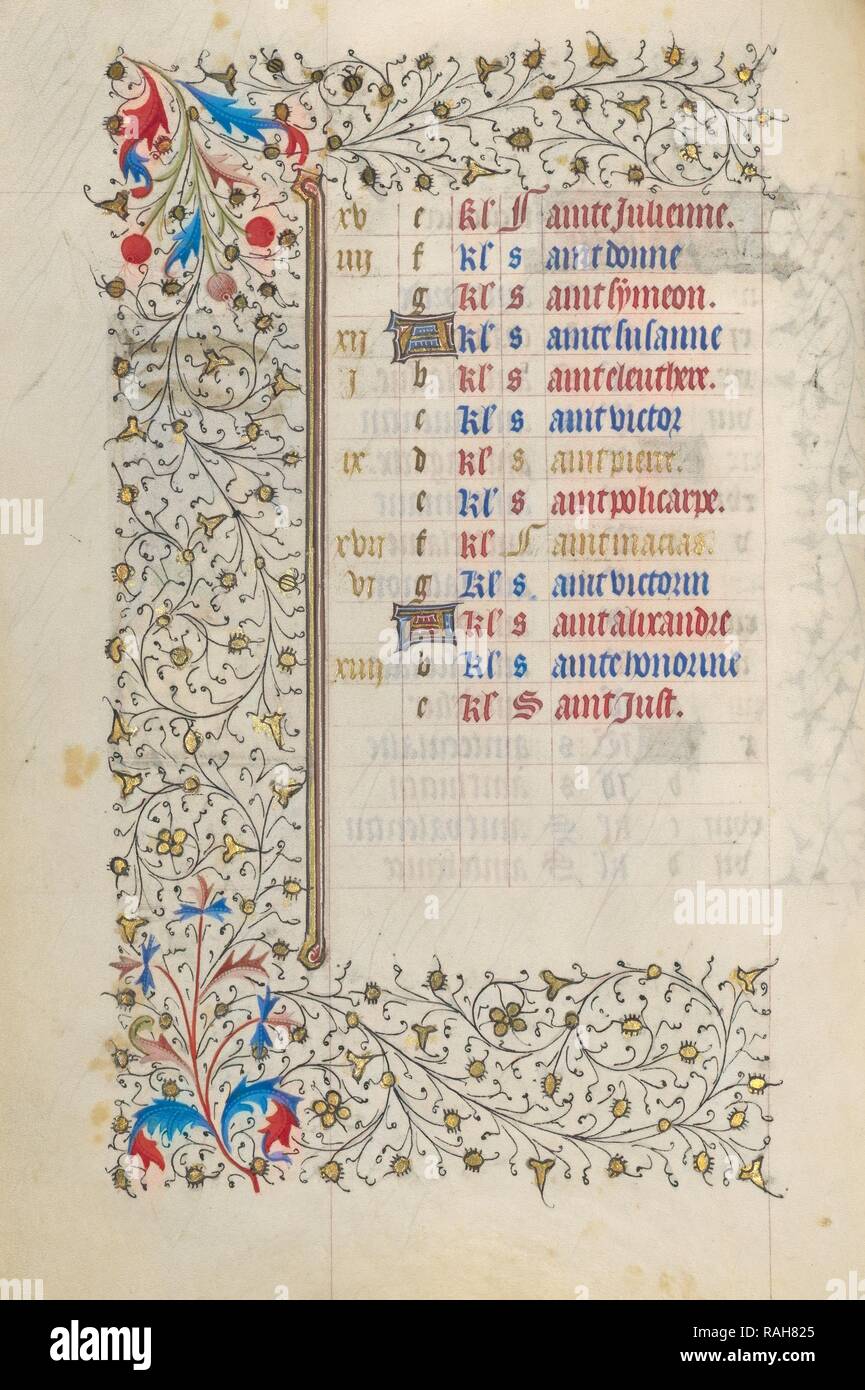 xv e kl' Sainte Julienne.
iiij f kl' s aint donne
g kl' s aint symeon.
xij A kl' s ainte susanne
j b kl' s aint eleuthere.
c kl' s aint victor
ix d kl' s aint pierre.
e kl' s aint policarpe.
xvij f kl' Saint macias.
vj g kl' s. aint victorin
A kl' s aint alixandre
xiiij b kl' s ainte honorine
c kl' S aint Just.
alamy
Image ID: RAH825
www.alamy.com